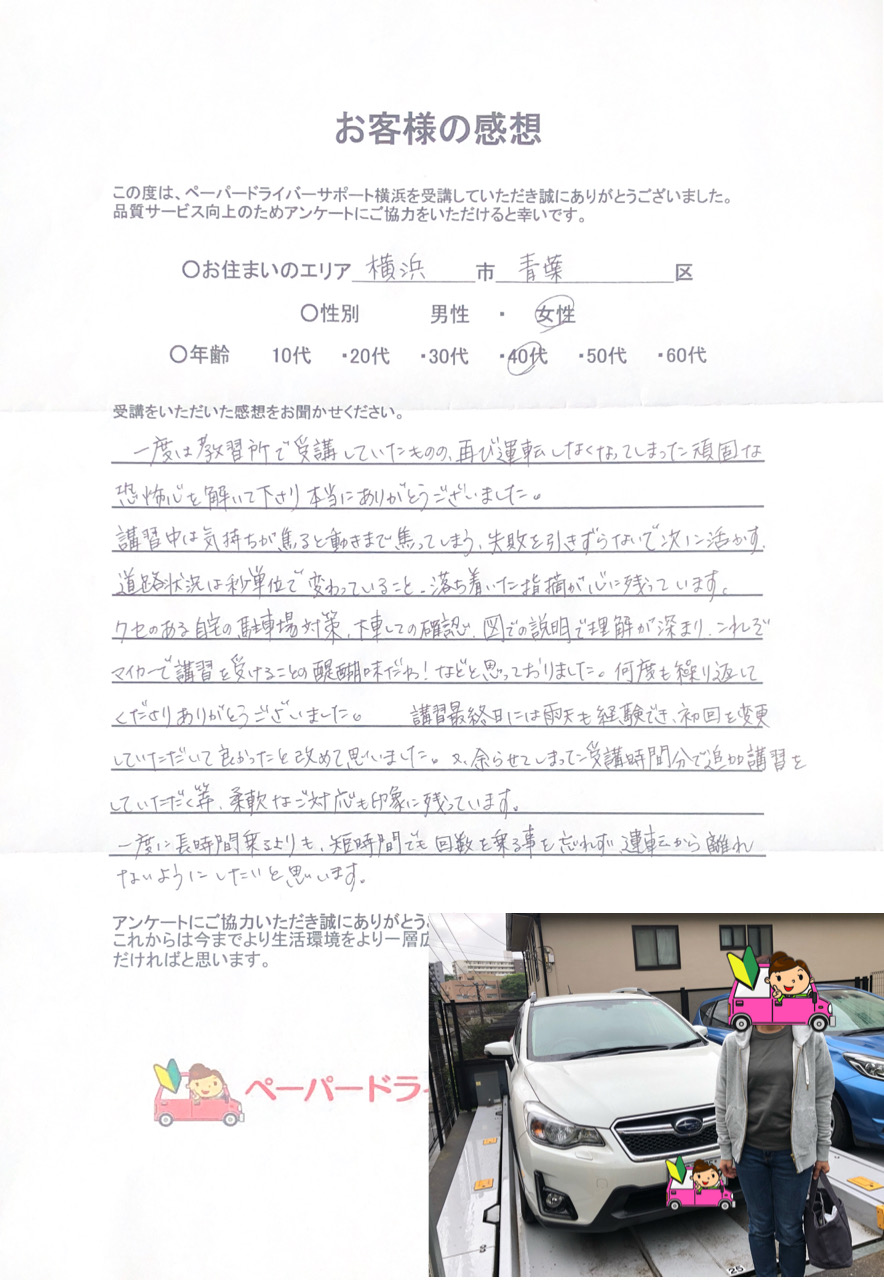 お客様の感想
この度は、ペーパードライバーサポート横浜を受講していただき誠にありがとうございました。
品質サービス向上のためアンケートにご協力をいただけると幸いです。
〇お住まいのエリア 横浜 市 青葉 区
〇性別 男性 ・ 女性
〇年齢 10代 ・20代 ・30代 ・40代 ・50代 ・60代
受講をいただいた感想をお聞かせください。
一度は教習所で受講していたものの、再び運転しなくなってしまった頑固な
恐怖心を解いて下さり本当にありがとうございました。
講習中は気持ちが焦ると動きまで焦ってしまう、失敗を引きずらないで次に活かす、
道路状況は秒単位で変わっていること、落ち着いた指摘が心に残っています。
クセのある自宅の駐車場対策、下車しての確認、図での説明で理解が深まり、これぞ
マイカーで講習を受けることの醍醐味だわ!などと思っておりました。何度も繰り返して
くださりありがとうございました。 講習最終日には雨天も経験でき、初回を変更
していただいて良かったと改めて思いました。又、余らせてしまった受講時間分で追加講習を
していただく等、柔軟なご対応も印象に残っています。
一度に長時間乗るよりも、短時間でも回数を乗る事を忘れず運転から離れ
ないようにしたいと思います。
アンケートにご協力いただき誠にありがとう
これからは今までより生活環境をより一層広
だければと思います。
ペーパードライ
25